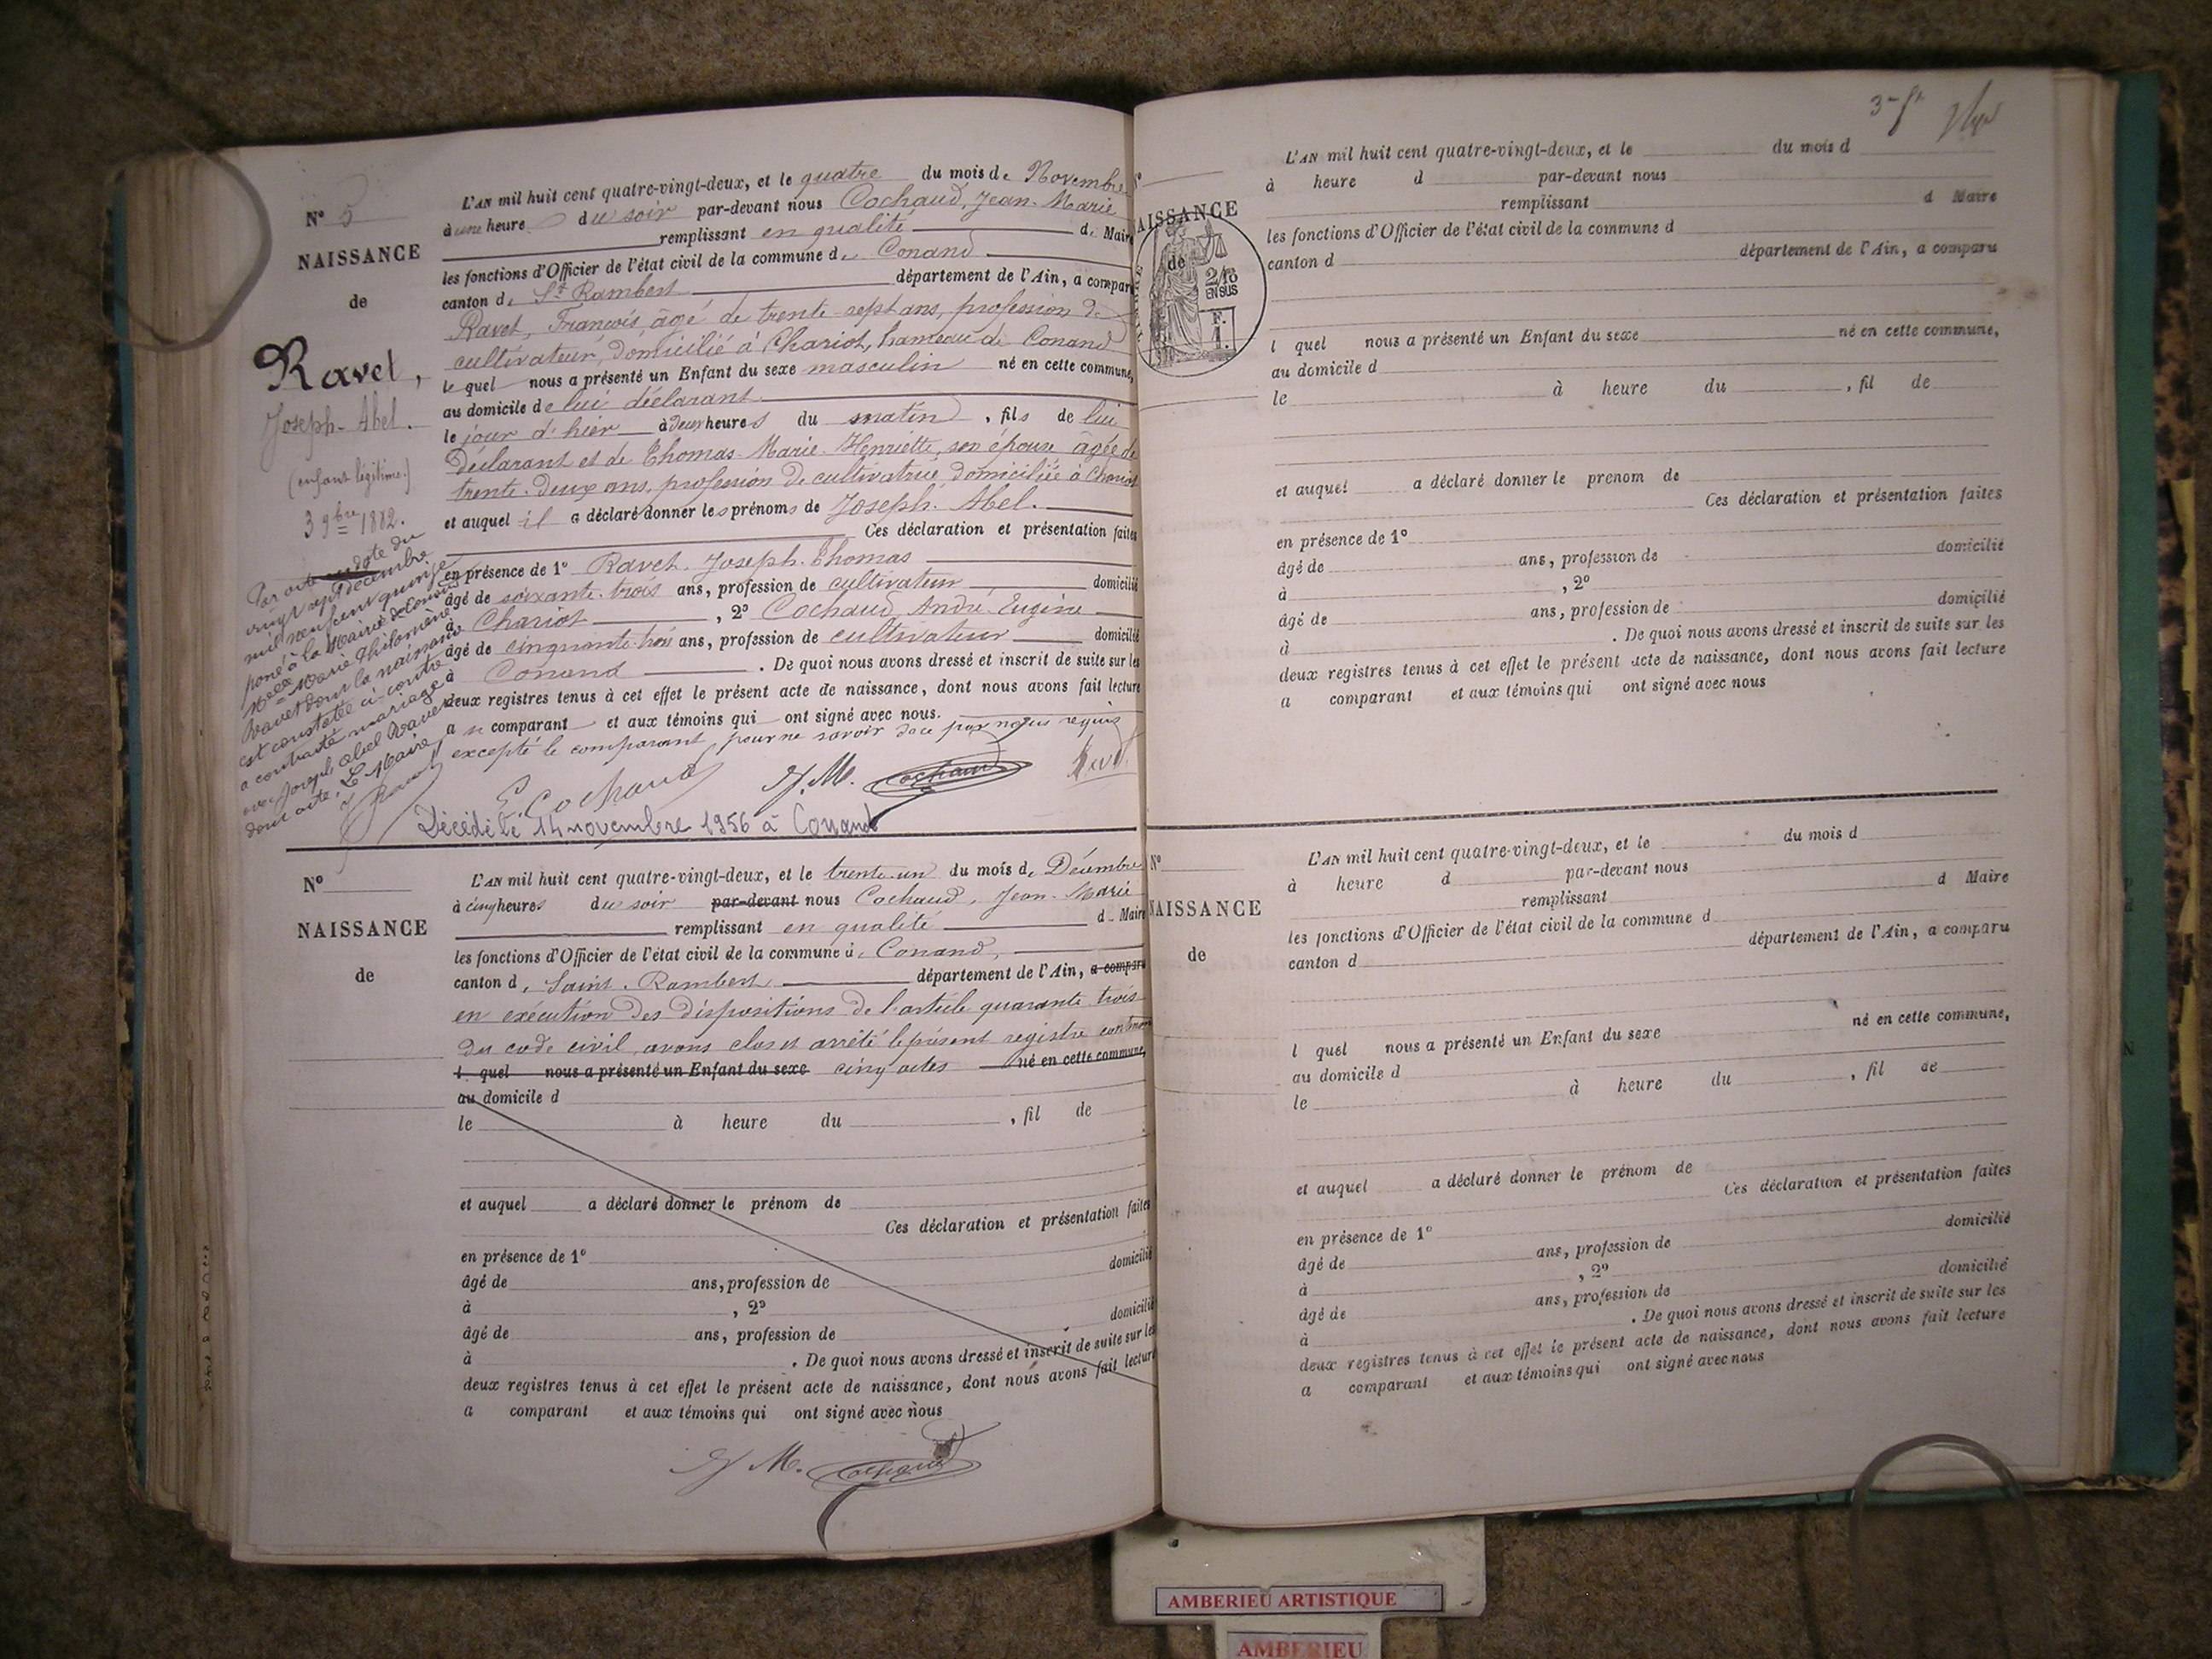 Nº 5
NAISSANCE
de
Ravet,
Joseph-Abel.
(enfant légitime.)
3 9bre 1882.
Par acte en date du
vingt sept décembre
mil neuf cent quinze
à la Mairie de Conand
Marie Philomène
Ravet dont la naissance
est constatée ci-contre
a contracté mariage
avec Joseph Abel Ravet
dont acte, Le Maire,
L'AN mil huit cent quatre-vingt-deux, et le quatre du mois de Novembre
à une heure du soir par-devant nous Cochaud, Jean-Marie
remplissant en qualité de Maire
les fonctions d'Officier de l'état civil de la commune de Conand
canton de St Rambert département de l'Ain, a comparu
Ravet, François, âgé de trente-sept ans, profession de
cultivateur, domicilié à Chariot, hameau de Conand
lequel nous a présenté un Enfant du sexe masculin né en cette commune,
au domicile de lui déclarant
le jour d'hier à deux heures du matin, fils de lui
déclarant et de Thomas Marie Henriette, son épouse âgée de
trente-deux ans, profession de cultivatrice domiciliée à Chariot
et auquel il a déclaré donner les prénoms de Joseph-Abel.
Ces déclaration et présentation faites
en présence de 1º Ravet Joseph-Thomas
âgé de soixante-trois ans, profession de cultivateur domicilié
à Chariot, 2º Cochaud André-Eugène
âgé de cinquante-trois ans, profession de cultivateur domicilié
à Conand. De quoi nous avons dressé et inscrit de suite sur les
deux registres tenus à cet effet le présent acte de naissance, dont nous avons fait lecture
au comparant et aux témoins qui ont signé avec nous.
excepté le comparant pour ne savoir de ce par nous requis
E. Cochaud J. M. Cochaud
Décédé le 14 novembre 1956 à Conand
Nº
NAISSANCE
de
L'AN mil huit cent quatre-vingt-deux, et le trente-un du mois de Décembre
à cinq heures du soir par-devant nous Cochaud, Jean-Marie
remplissant en qualité de Maire
les fonctions d'Officier de l'état civil de la commune de Conand,
canton de Saint-Rambert département de l'Ain, a comparu
en exécution des dispositions de l'article quarante trois
du code civil, avons clos et arrêté le présent registre contenant
l quel nous a présenté un Enfant du sexe cinq actes né en cette commune,
au domicile d
le à heure du , fil de
et auquel a déclaré donner le prénom de
Ces déclaration et présentation faites
en présence de 1º
domicilié
âgé de ans, profession de
à , 2º
domicilié
âgé de ans, profession de
à . De quoi nous avons dressé et inscrit de suite sur les
deux registres tenus à cet effet le présent acte de naissance, dont nous avons fait lecture
a comparant et aux témoins qui ont signé avec nous
J. M. Cochaud
NAISSANCE
de
2/10
EN SUS
F.
1.
L'AN mil huit cent quatre-vingt-deux, et le du mois d
à heure d par-devant nous
remplissant d Maire
les fonctions d'Officier de l'état civil de la commune d
canton d département de l'Ain, a comparu
l quel nous a présenté un Enfant du sexe né en cette commune,
au domicile d
le à heure du , fil de
et auquel a déclaré donner le prenom de
Ces déclaration et présentation faites
en présence de 1º
âgé de ans, profession de domicilié
à , 2º
âgé de ans, profession de domicilié
à . De quoi nous avons dressé et inscrit de suite sur les
deux registres tenus à cet effet le présent acte de naissance, dont nous avons fait lecture
a comparant et aux témoins qui ont signé avec nous
Nº
NAISSANCE
de
L'AN mil huit cent quatre-vingt-deux, et le du mois d
à heure d par-devant nous
remplissant d Maire
les fonctions d'Officier de l'état civil de la commune d
canton d département de l'Ain, a comparu
l quel nous a présenté un Enfant du sexe né en cette commune,
au domicile d
le à heure du , fil de
et auquel a déclaré donner le prénom de
Ces déclaration et présentation faites
en présence de 1º
âgé de ans, profession de domicilié
à , 2º
âgé de ans, profession de domicilié
à . De quoi nous avons dressé et inscrit de suite sur les
deux registres tenus à cet effet le présent acte de naissance, dont nous avons fait lecture
a comparant et aux témoins qui ont signé avec nous
AMBERIEU ARTISTIQUE
AMBERIEU